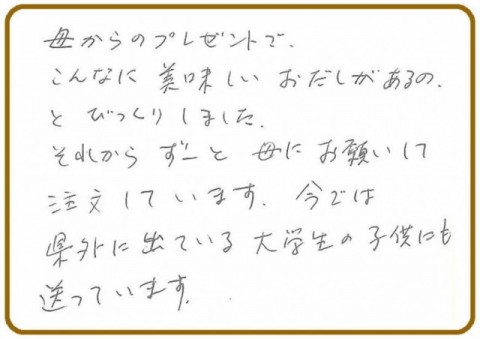 母からのプレゼントで、
こんなに美味しいおだしがあるの、
とびっくりしました。
それからずーと母にお願いして
注文しています。今では
県外に出ている大学生の子供にも
送っています。